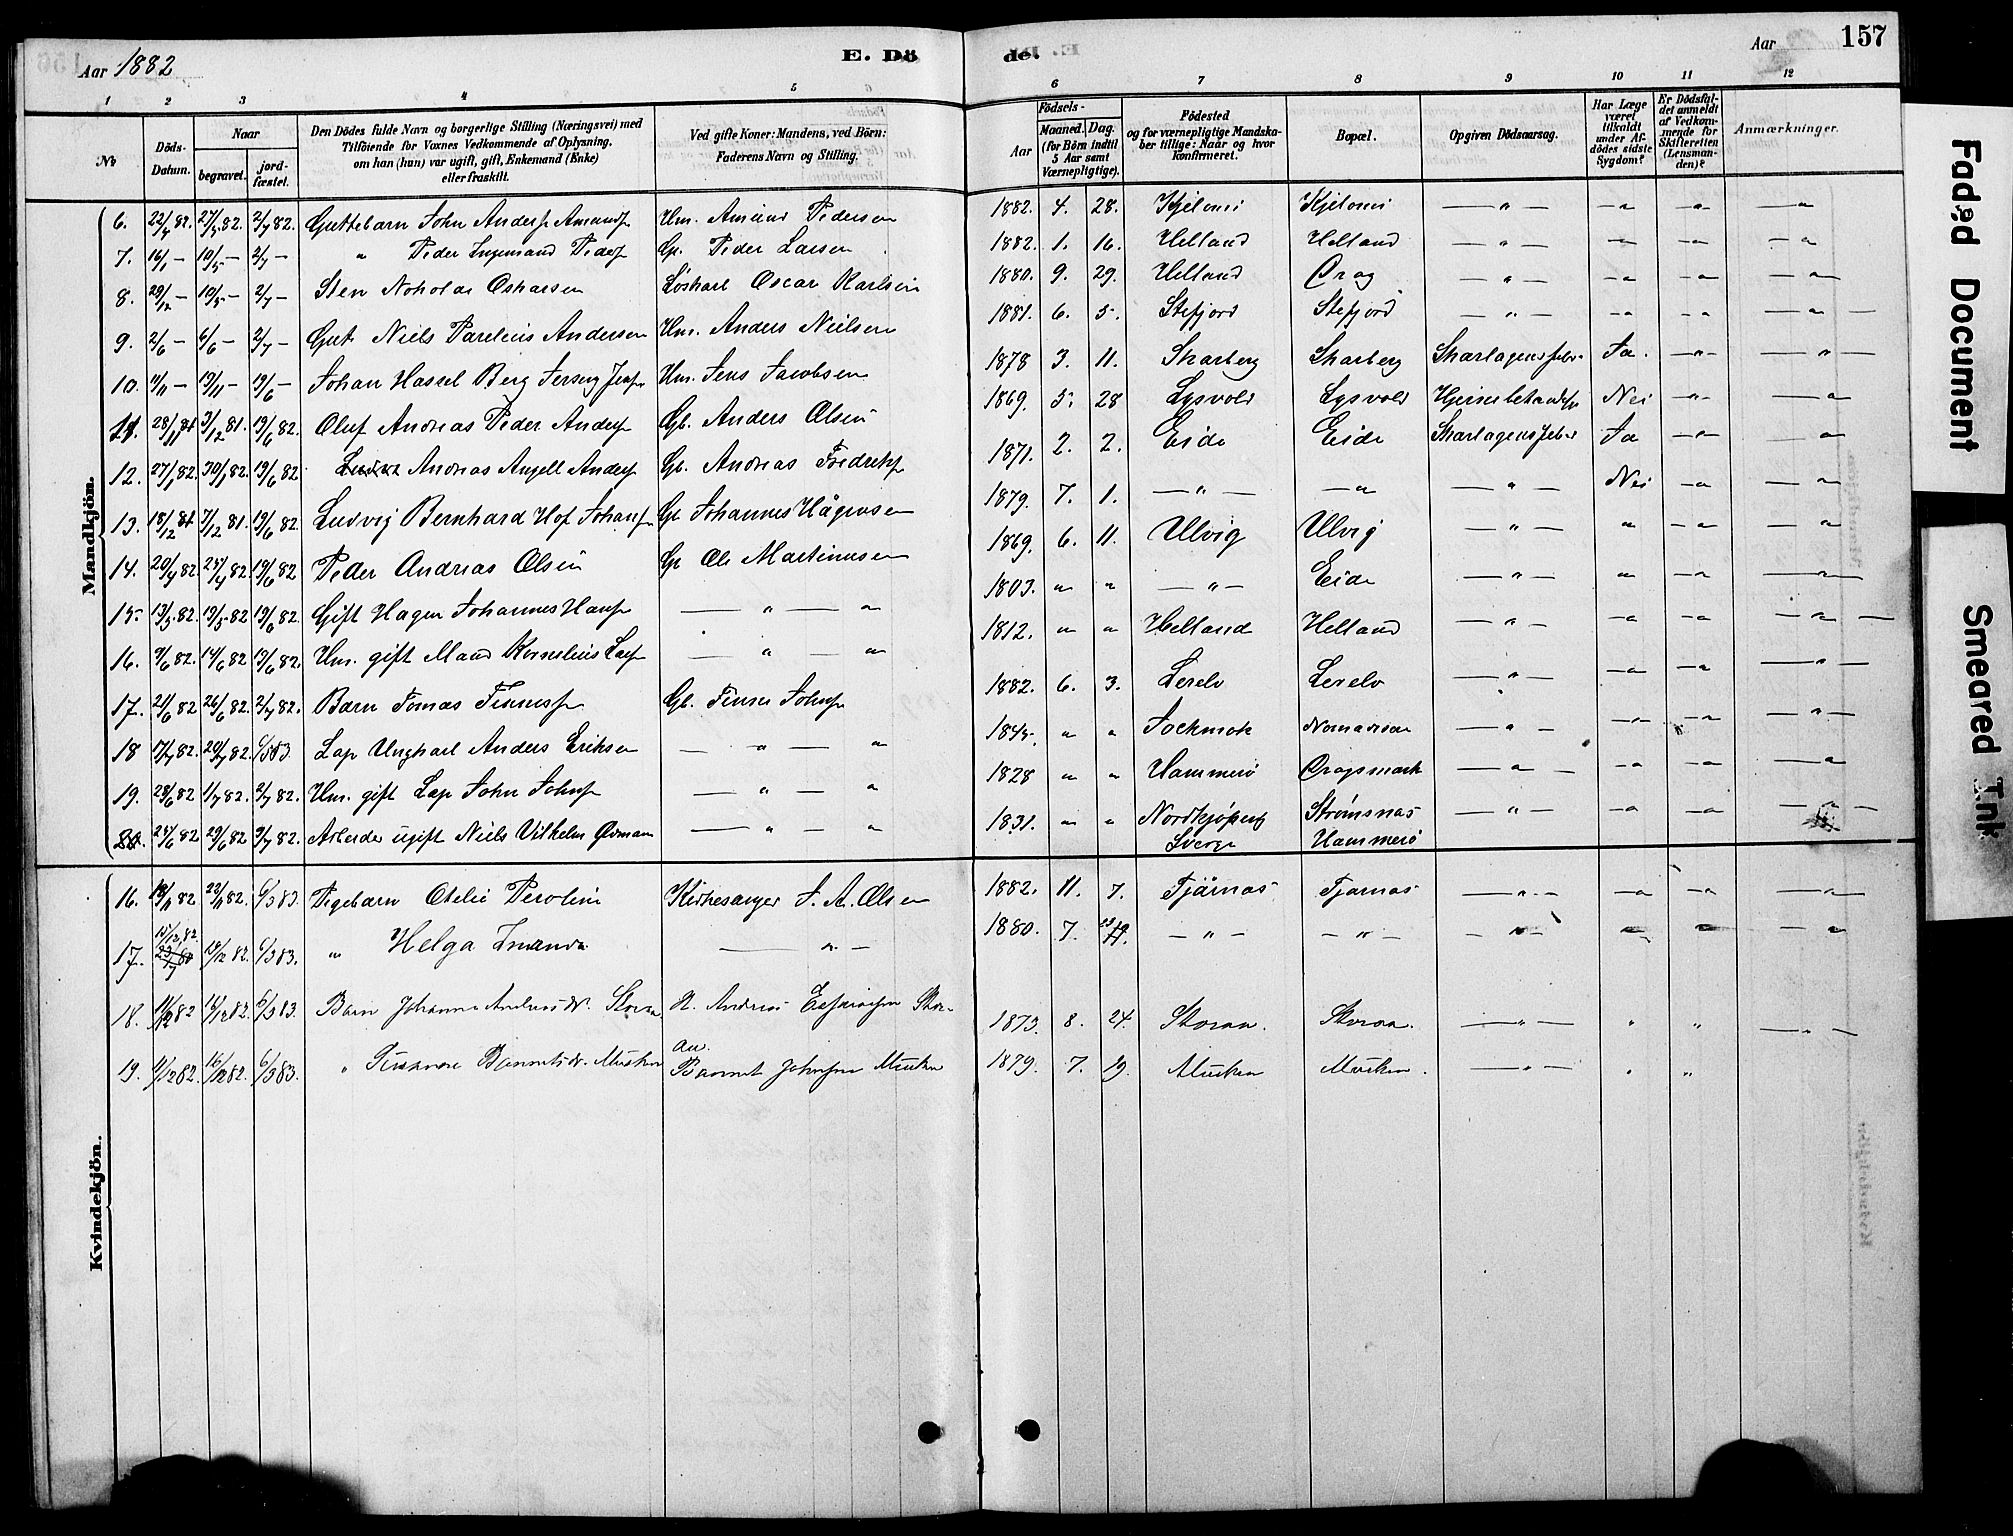 Aar 1882
E. Dö
de.
Aar
157
1 2 3 4 5 6 7 8 9 10 11 12
No
Döds-Datum.
Naar
begravet.
jord-fæstet.
Den Dödes fulde Navn og borgerlige Stilling (Næringsvei) med
Tilföiende for Voxnes Vedkommende af Oplysning.
om han (hun) var ugift, gift, Enkemand (Enke)
eller fraskilt.
Ved gifte Koner: Mandens, ved Börn:
Faderens Navn og Stilling.
Födsels-
Aar
Maaned. Dag.
(for Börn indtil
5 Aar samt
Værnepligtige).
Födested
og for værnepligtige Mandska-
ber tillige: Naar og hvor
konfirmeret.
Bopæl.
Opgiven Dödsaarsag.
Har Læge
været
tilkaldt
under Af-
dödes sidste
Sygdom?
Er Dödsfal-
det anmeldt
af Vedkom-
mende for
Skifteretten
(Lensman-
den)?
Anmærkninger.
Mandkjön.
6. 22/7 82. 27/7 82. 2/7 82. Guttebarn John Anders Amunds Hm. Amund Pedersen 1882. 4. 28. Kjelvmi Kjelvmi — " — — " — " — "
7. 16/1 — 10/5 — 2/7 — " Peder Ingemand Peders Gp. Peder Larsen 1882. 1. 16. Helland Helland — " — — " — " — "
8. 29/12 — 10/5 — 2/7 — Sten Nokolai Oskarsen Løskarl Oscar Karlsen 1880. 9. 29. Helland Drag — " — — " — " — "
9. 2/6 — 6/6 — 2/7 — Gut Niels Parelius Andersen Hm. Anders Nielsen 1881. 6. 5. Stefjord Stefjord — " — — " — " — " —
10. 11/11 — 19/11 — 19/6 — Johan Hassel Berg Jens Hm. Jens Jacobsen 1878 3. 11. Skarberg Skarberg Skarlagensfeber Ja. — " — — " —
11. 28/11 81 3/12 81. 19/6 82. Oluf Andreas Peder Anders Gb. Anders Olsen 1869. 5. 28 Lysvold Lysvold Hjernebetændelse Nei — " — "
12. 27/1 82. 30/1 82. 19/6 82 Andreas Angell Anders Gb. Andreas Fredriks 1871. 2. 2. Eide Eide Skarlagensfeber Ja — " — "
13. 18/12 81 7/12 81. 19/6 82. Ludvig Bernhard Hof Johans Gb. Johannes Hågensen 1879. 7. 1. — " — — " — " — Nei — " — "
14. 20/4 82. 25/4 82. 19/6 82 Peder Andreas Olsen Gp Ole Martinussen 1869. 6. 11. Ulvig Ulvig — " — " — " — "
15. 13/5 82. 19/5 82 19/6 82. Gift Hagen Johannes Hans — " — " 1803. " " — " — Eide — " — " — " — "
16. 7/6 82. 14/6 82 19/6 82. Hm. gift Mand Kornelius Lars — " — " 1812. " " Helland Helland — " — — " — " — " —
17. 21/6 82 26/6 82. 2/7 82. Barn Tomas Finnes Gb. Finnes Johns 1882. 6. 3. Lerelv Lerelv — " — — " — " — " —
18 17/7 82. 20/7 82. 6/5 83. Lap Ungkarl Anders Eriksen — " — " 1845. " " Jockmok — " — — " — " — " —
19. 28/6 82 1/7 82. 2/7 82. Hm. gift Lap John Johns — " — " 1828 " " Hammerø Dragsmark — " — — " — " — "
20. 25/6 82 29/6 82 3/7 82. Arbeider ugift Niels Vilhelm Ödman — " — " 1831. " " Nordkjøping Strømsnas — " — — " — " — " —
Sverge Hammerø
Kvindekjön.
16. 18/11 82 22/11 82. 6/5 83. Pigebarn Otelie Peroline Kirkesanger J. A. Olsen 1882. 11. 7. Tjärnas Tjarnas — " — — " — " — "
17. 15/12 82. 19/12 82. 6/5 83. " Helga — " — 1880. 7. — " — — " — — " — — " — " — "
18. 11/12 82 16/12 82. 6/5 83. Barn Johanna Andreasdr. Storaa N. Andreas Storaa 1873. 8. 24. Storaa. Storaa. — " — " " — " —
19. 11/12 82. 16/12 82. 6/5 83. " Bannetsdr. Musken Bannet Johnsen Musken 1879. 7. 19. Musken Musken. — " — " "
Faded Document
Smeared Ink